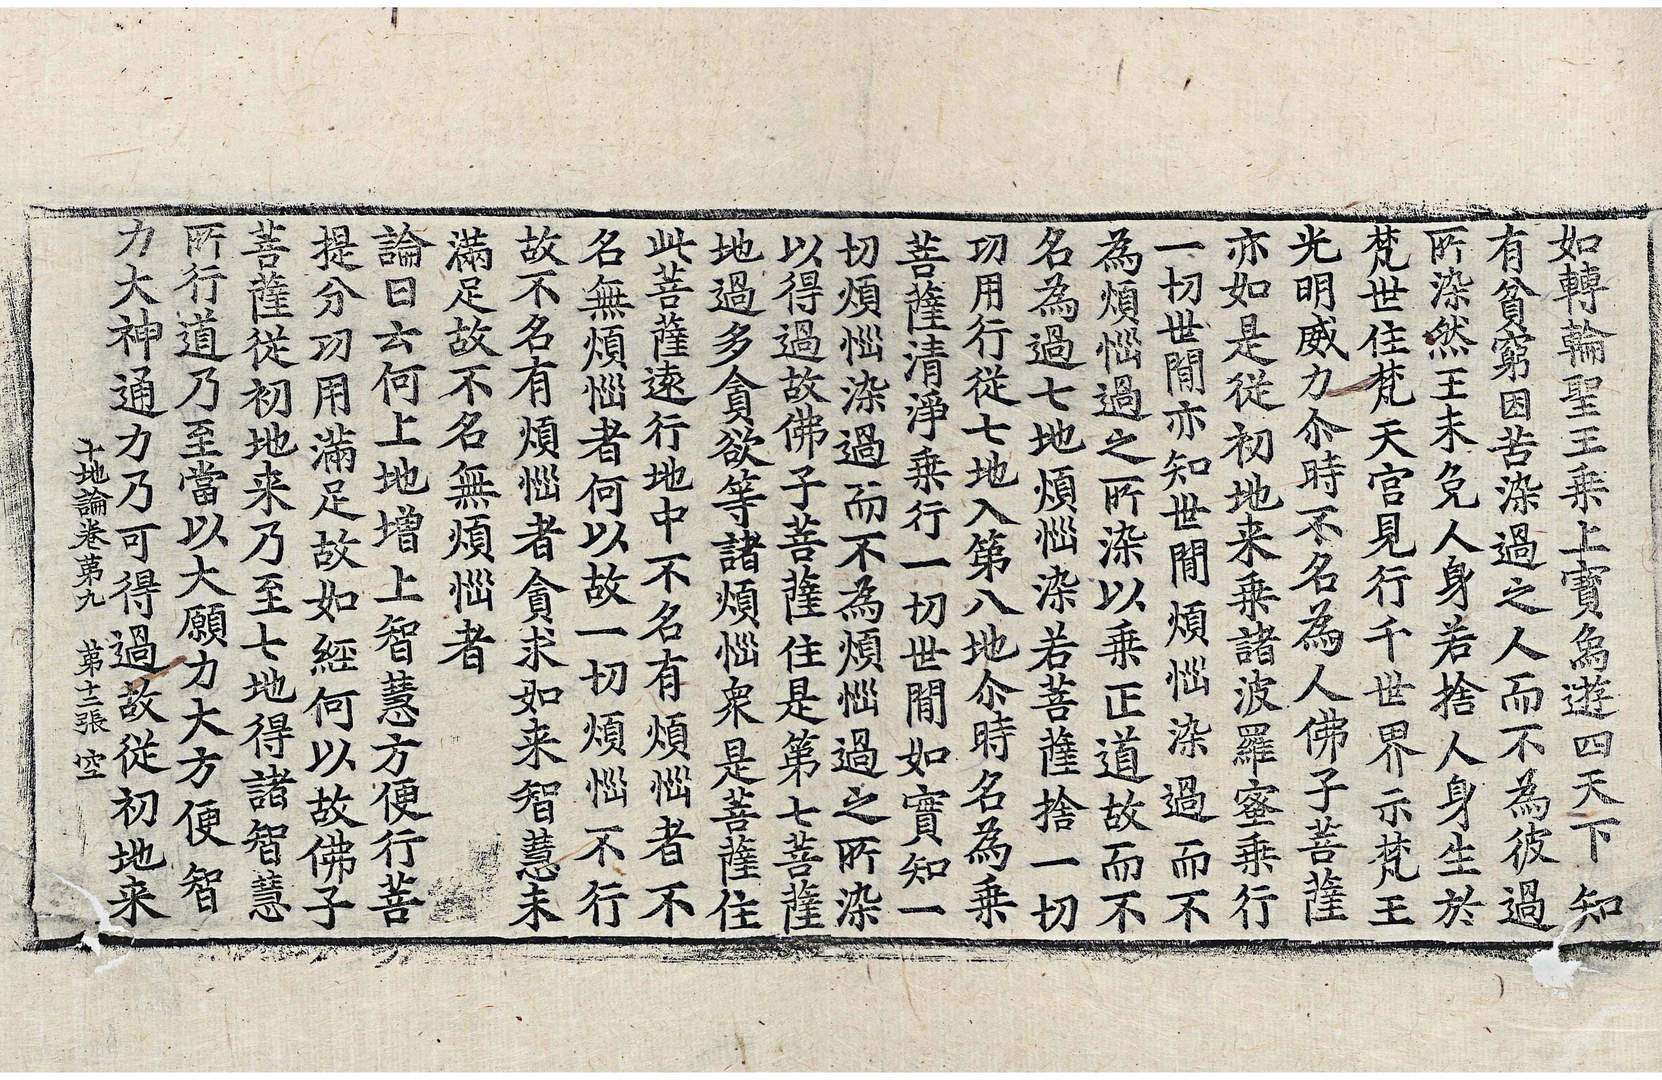 如轉輪聖王乗上寶象遊四天下知
有貧窮困苦染過之人而不為彼過
所染然王未免人身若捨人身生於
梵世住梵天宮見行千世界示梵王
光明威力尒時不名為人佛子菩薩
亦如是從初地来乗諸波羅蜜乗行
一切世閒亦知世閒煩惱染過而不
為煩惱過之所染以乗正道故而不
名為過七地煩惱染若菩薩捨一切
功用行從七地入第八地尒時名為乗
菩薩清淨乗行一切世閒如實知一
切煩惱染過而不為煩惱過之所染
以得過故佛子菩薩住是第七菩薩
地過多貪欲等諸煩惱衆是菩薩住
此菩薩遠行地中不名有煩惱者不
名無煩惱者何以故一切煩惱不行
故不名有煩惱者貪求如来智慧未
滿足故不名無煩惱者
論曰云何上地増上智慧方便行菩
提分功用滿足故如經何以故佛子
菩薩從初地来乃至七地得諸智慧
所行道乃至當以大願力大方便智
力大神通力乃可得過故從初地来
十地論卷第九　第十三張　空